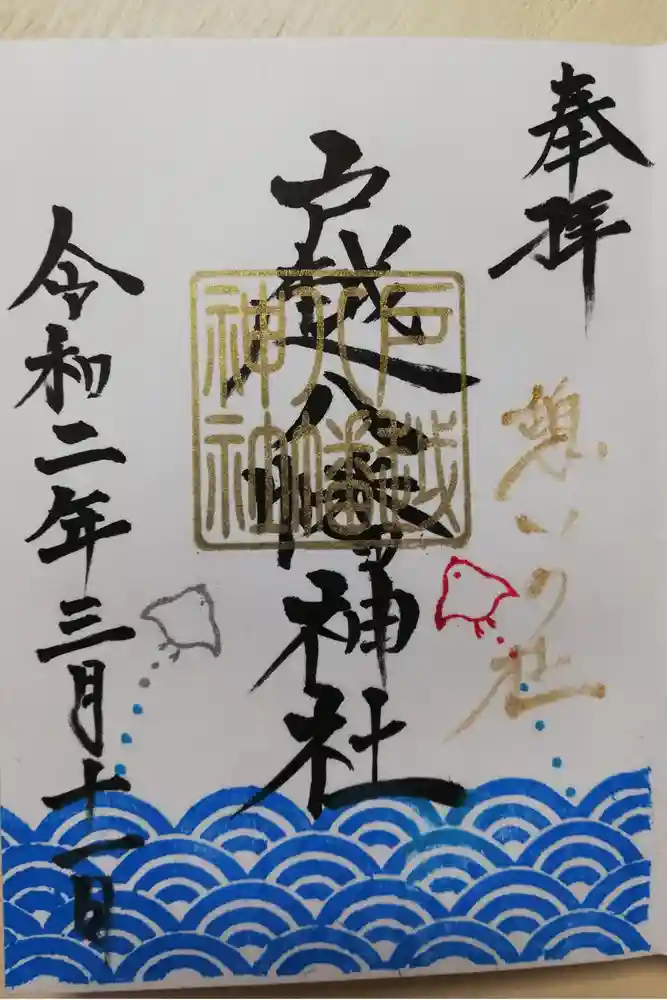 奉拝
想いのせ
戸越八幡神社
戸越
八幡
神社
令和二年三月十一日